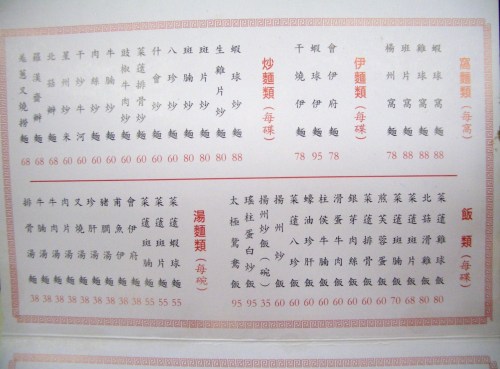 窩麵類(每窩)
蝦球窩麵 88
雞球窩麵 88
班片窩麵 78
楊州窩麵 78
伊麵類(每碟)
會伊府麵 78
蝦球伊麵 95
干燒伊麵 78
炒麵類(每碟)
蝦球炒麵 88
生雞片炒麵 80
班片炒麵 80
班腩炒麵 80
八珍炒麵 60
什會炒麵 60
菜蓮排骨炒麵 60
豉椒牛肉炒麵 60
肉絲炒麵 60
干炒牛河 60
星州炒米 60
北菇辦麵 68
羅漢齋辦麵 68
叉燒撈麵 68
飯類(每碟)
菜蓮雞球飯 80
北菇滑雞飯 80
菜蓮班片飯 68
菜蓮班腩飯 70
煎芙蓉蛋飯 60
菜蓮排骨飯 60
銀芽肉絲飯 60
滑蛋牛肉飯 60
柱侯牛腩飯 60
蠔油珍肝飯 60
菜蓮八珍飯 60
揚州炒飯 60
揚州炒飯(碗) 35
瑤柱蛋白炒飯 95
太極鴛鴦飯 95
湯麵類(每碗)
菜蓮蝦球麵 55
菜蓮班片麵 55
菜蓮班腩麵 55
會伊府麵 38
甫魚伊麵 38
豬膶湯麵 38
珍肝湯麵 38
叉燒湯麵 38
肉片湯麵 38
牛腩湯麵 38
排骨湯麵 38